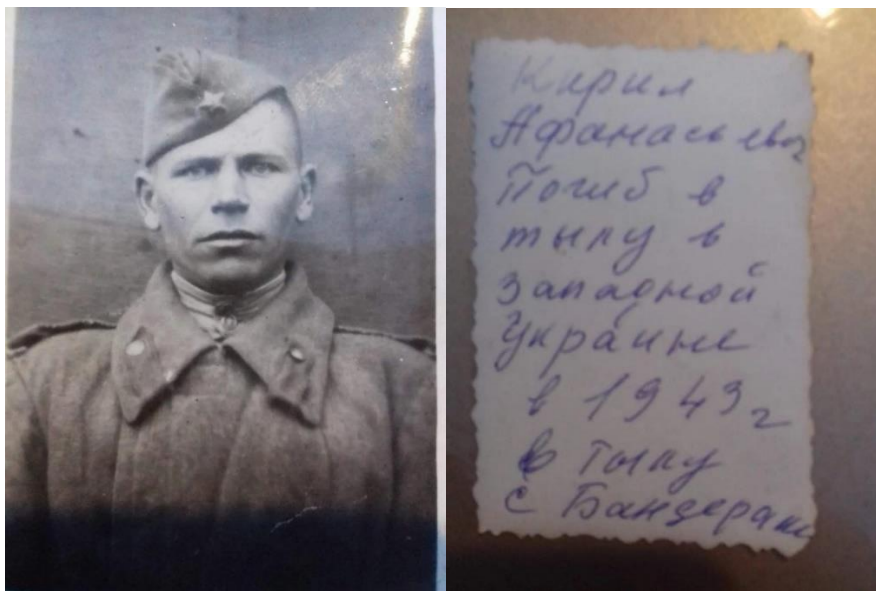 Кирил
Афанасьевич
Погиб в
тылу в
Западной
Украине
в 1943 г
в тылу
с Бандерами